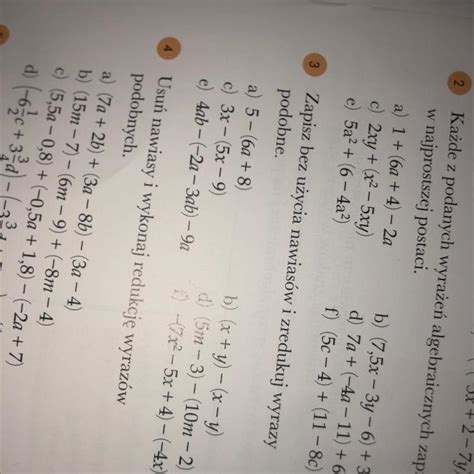 ( 3x + 2 − 7y
2 Każde z podanych wyrażeń algebraicznych zap
w najprostszej postaci.
a) 1 + (6a + 4) − 2a
b) (7,5x − 3y − 6) + 3
c) 2xy + (x² − 5xy)
d) 7a + (−4a − 11) + 6
e) 5a² + (6 − 4a²)
f) (5c − 4) + (11 − 8c)
3 Zapisz bez użycia nawiasów i zredukuj wyrazy
podobne.
a) 5 − (6a + 8)
b) (x + y) − (x − y)
c) 3x − (5x − 9)
d) (5m − 3) − (10m − 2)
e) 4ab − (−2a − 3ab) − 9a
f) −(7x² − 5x + 4) − (−4x
4 Usuń nawiasy i wykonaj redukcję wyrazów
podobnych.
a) (7a + 2b) + (3a − 8b) − (3a − 4)
b) (15m − 7) − (6m − 9) + (−8m − 4)
c) (5,5a − 0,8) + (−0,5a + 1,8) − (−2a + 7)
d) (−6½c + 3¾d) − (−3